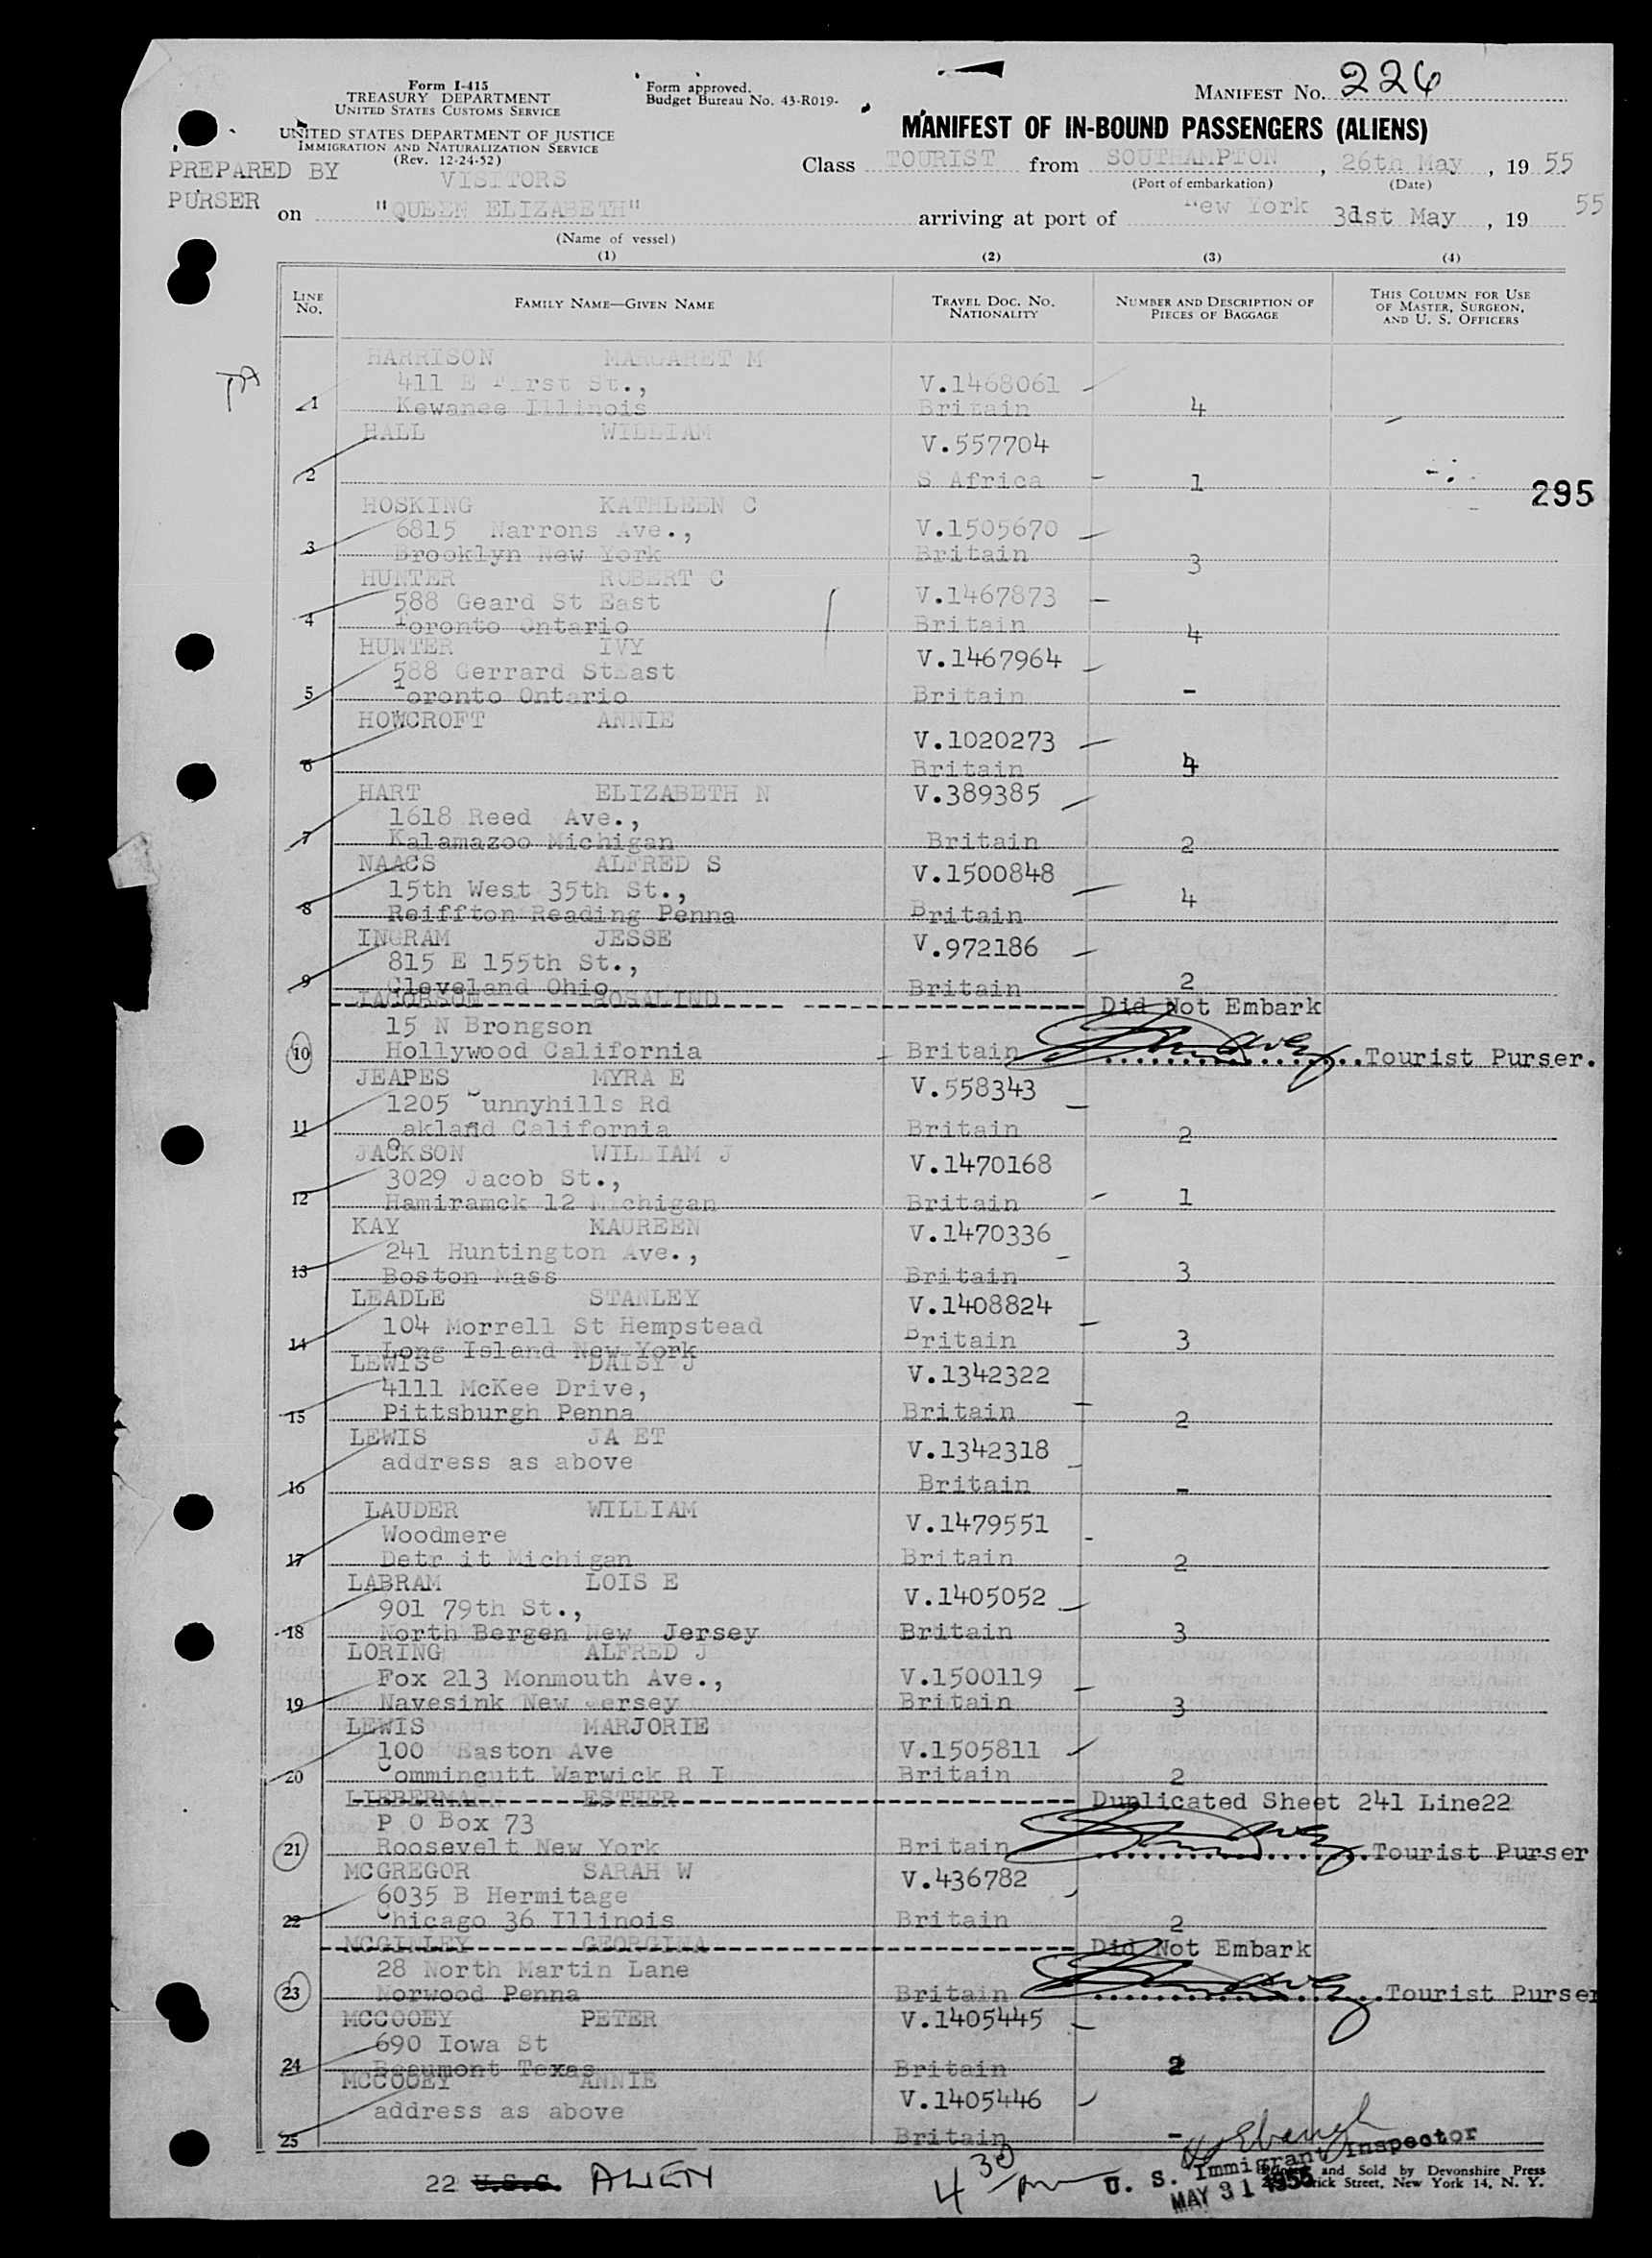 Form I-415
TREASURY DEPARTMENT
UNITED STATES CUSTOMS SERVICE
UNITED STATES DEPARTMENT OF JUSTICE
IMMIGRATION AND NATURALIZATION SERVICE
(Rev. 12-24-52)
Form approved.
Budget Bureau No. 43-R019-
MANIFEST NO. 226
MANIFEST OF IN-BOUND PASSENGERS (ALIENS)
PREPARED BY
PURSER
VISITORS
Class TOURIST from SOUTHAMPTON, 26th May, 19 55
(Port of embarkation) (Date)
on "QUEEN ELIZABETH" arriving at port of New York 31st May, 19 55
(Name of vessel)
(1) (2) (3) (4)
LINE NO. FAMILY NAME—GIVEN NAME TRAVEL DOC. NO. NATIONALITY NUMBER AND DESCRIPTION OF PIECES OF BAGGAGE THIS COLUMN FOR USE OF MASTER, SURGEON, AND U. S. OFFICERS
HARRISON MARGARET M
411 E First St., V.1468061
1 Kewanee Illinois Britain 4
HALL WILLIAM V.557704
2 S Africa 1
295
HOSKING KATHLEEN C
6815 Narrons Ave., V.1505670
3 Brooklyn New York Britain 3
HUNTER ROBERT C
588 Geard St East V.1467873
4 Toronto Ontario Britain 4
HUNTER IVY V.1467964
588 Gerrard StEast
5 Toronto Ontario Britain -
HOWCROFT ANNIE
V.1020273
6 Britain 4
HART ELIZABETH N V.389385
1618 Reed Ave.,
7 Kalamazoo Michigan Britain 2
NAACS ALFRED S V.1500848
15th West 35th St.,
8 Reiffton Reading Penna Britain 4
INGRAM JESSE V.972186
815 E 155th St.,
9 Cleveland Ohio Britain 2
JACOBSON ROSALIND Did Not Embark
15 N Brongson
10 Hollywood California Britain Tourist Purser.
JEAPES MYRA E V.558343
1205 Sunnyhills Rd
11 Oakland California Britain 2
JACKSON WILLIAM J V.1470168
3029 Jacob St.,
12 Hamiramck 12 Michigan Britain 1
KAY MAUREEN V.1470336
241 Huntington Ave.,
13 Boston Mass Britain 3
LEADLE STANLEY V.1408824
104 Morrell St Hempstead
14 Long Island New York Britain 3
LEWIS DAISY J V.1342322
4111 McKee Drive,
15 Pittsburgh Penna Britain 2
LEWIS JA ET V.1342318
address as above
16 Britain -
LAUDER WILLIAM V.1479551
Woodmere
17 Detr it Michigan Britain 2
LABRAM LOIS E V.1405052
901 79th St.,
18 North Bergen New Jersey Britain 3
LORING ALFRED J
Fox 213 Monmouth Ave., V.1500119
19 Navesink New Jersey Britain 3
LEWIS MARJORIE
100 Easton Ave V.1505811
20 Commingutt Warwick R I Britain 2
LIEBERMANN ESTHER Duplicated Sheet 241 Line22
P O Box 73
21 Roosevelt New York Britain Tourist Purser
MCGREGOR SARAH W V.436782
6035 B Hermitage
22 Chicago 36 Illinois Britain 2
MCGINLEY GEORGINA Did Not Embark
28 North Martin Lane
23 Norwood Penna Britain Tourist Purser
MCCOOEY PETER V.1405445
690 Iowa St
24 Beaumont Texas Britain 2
MCCOOEY ANNIE V.1405446
address as above
25 Britain -
22 U.S.C. ALIEN 4 30 pm
U. S. Immigrant Inspector
MAY 31 1955
and Sold by Devonshire Press
Street, New York 14, N. Y.